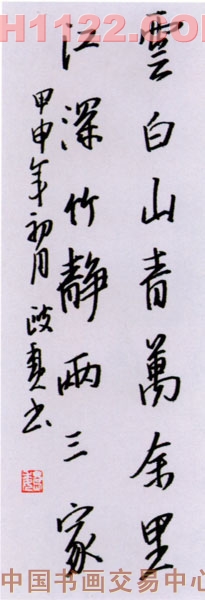 H1122.COM
雲白山青萬余里
江深竹静兩三家
甲申年初月
中国书画交易中心